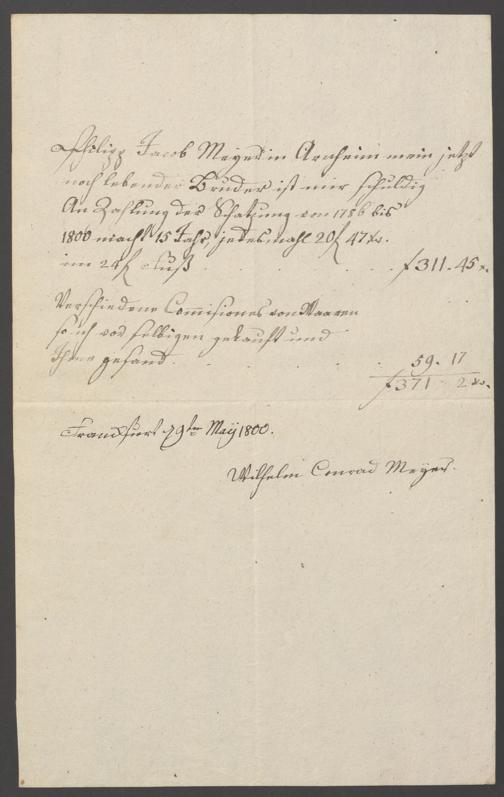 Philipp Jacob Meyer in Arnheim mein jetzt
noch lebender Bruder ist mir schuldig
An Zahlung der Schatzung von 1786 bis
1800 macht 15 Jahr jedesmahl 20f 47xr.
im 24f Fuß . . . f 311. 45 xr.
Verschiedene Commisiones von Waaren
so ich vor selbigen gekauft und
Ihme gesand . . . . 59. 17
f 371 . 2 xr.
Franckfurt d 9ten Maÿ 1800.
Wilhelm Conrad Meyer.